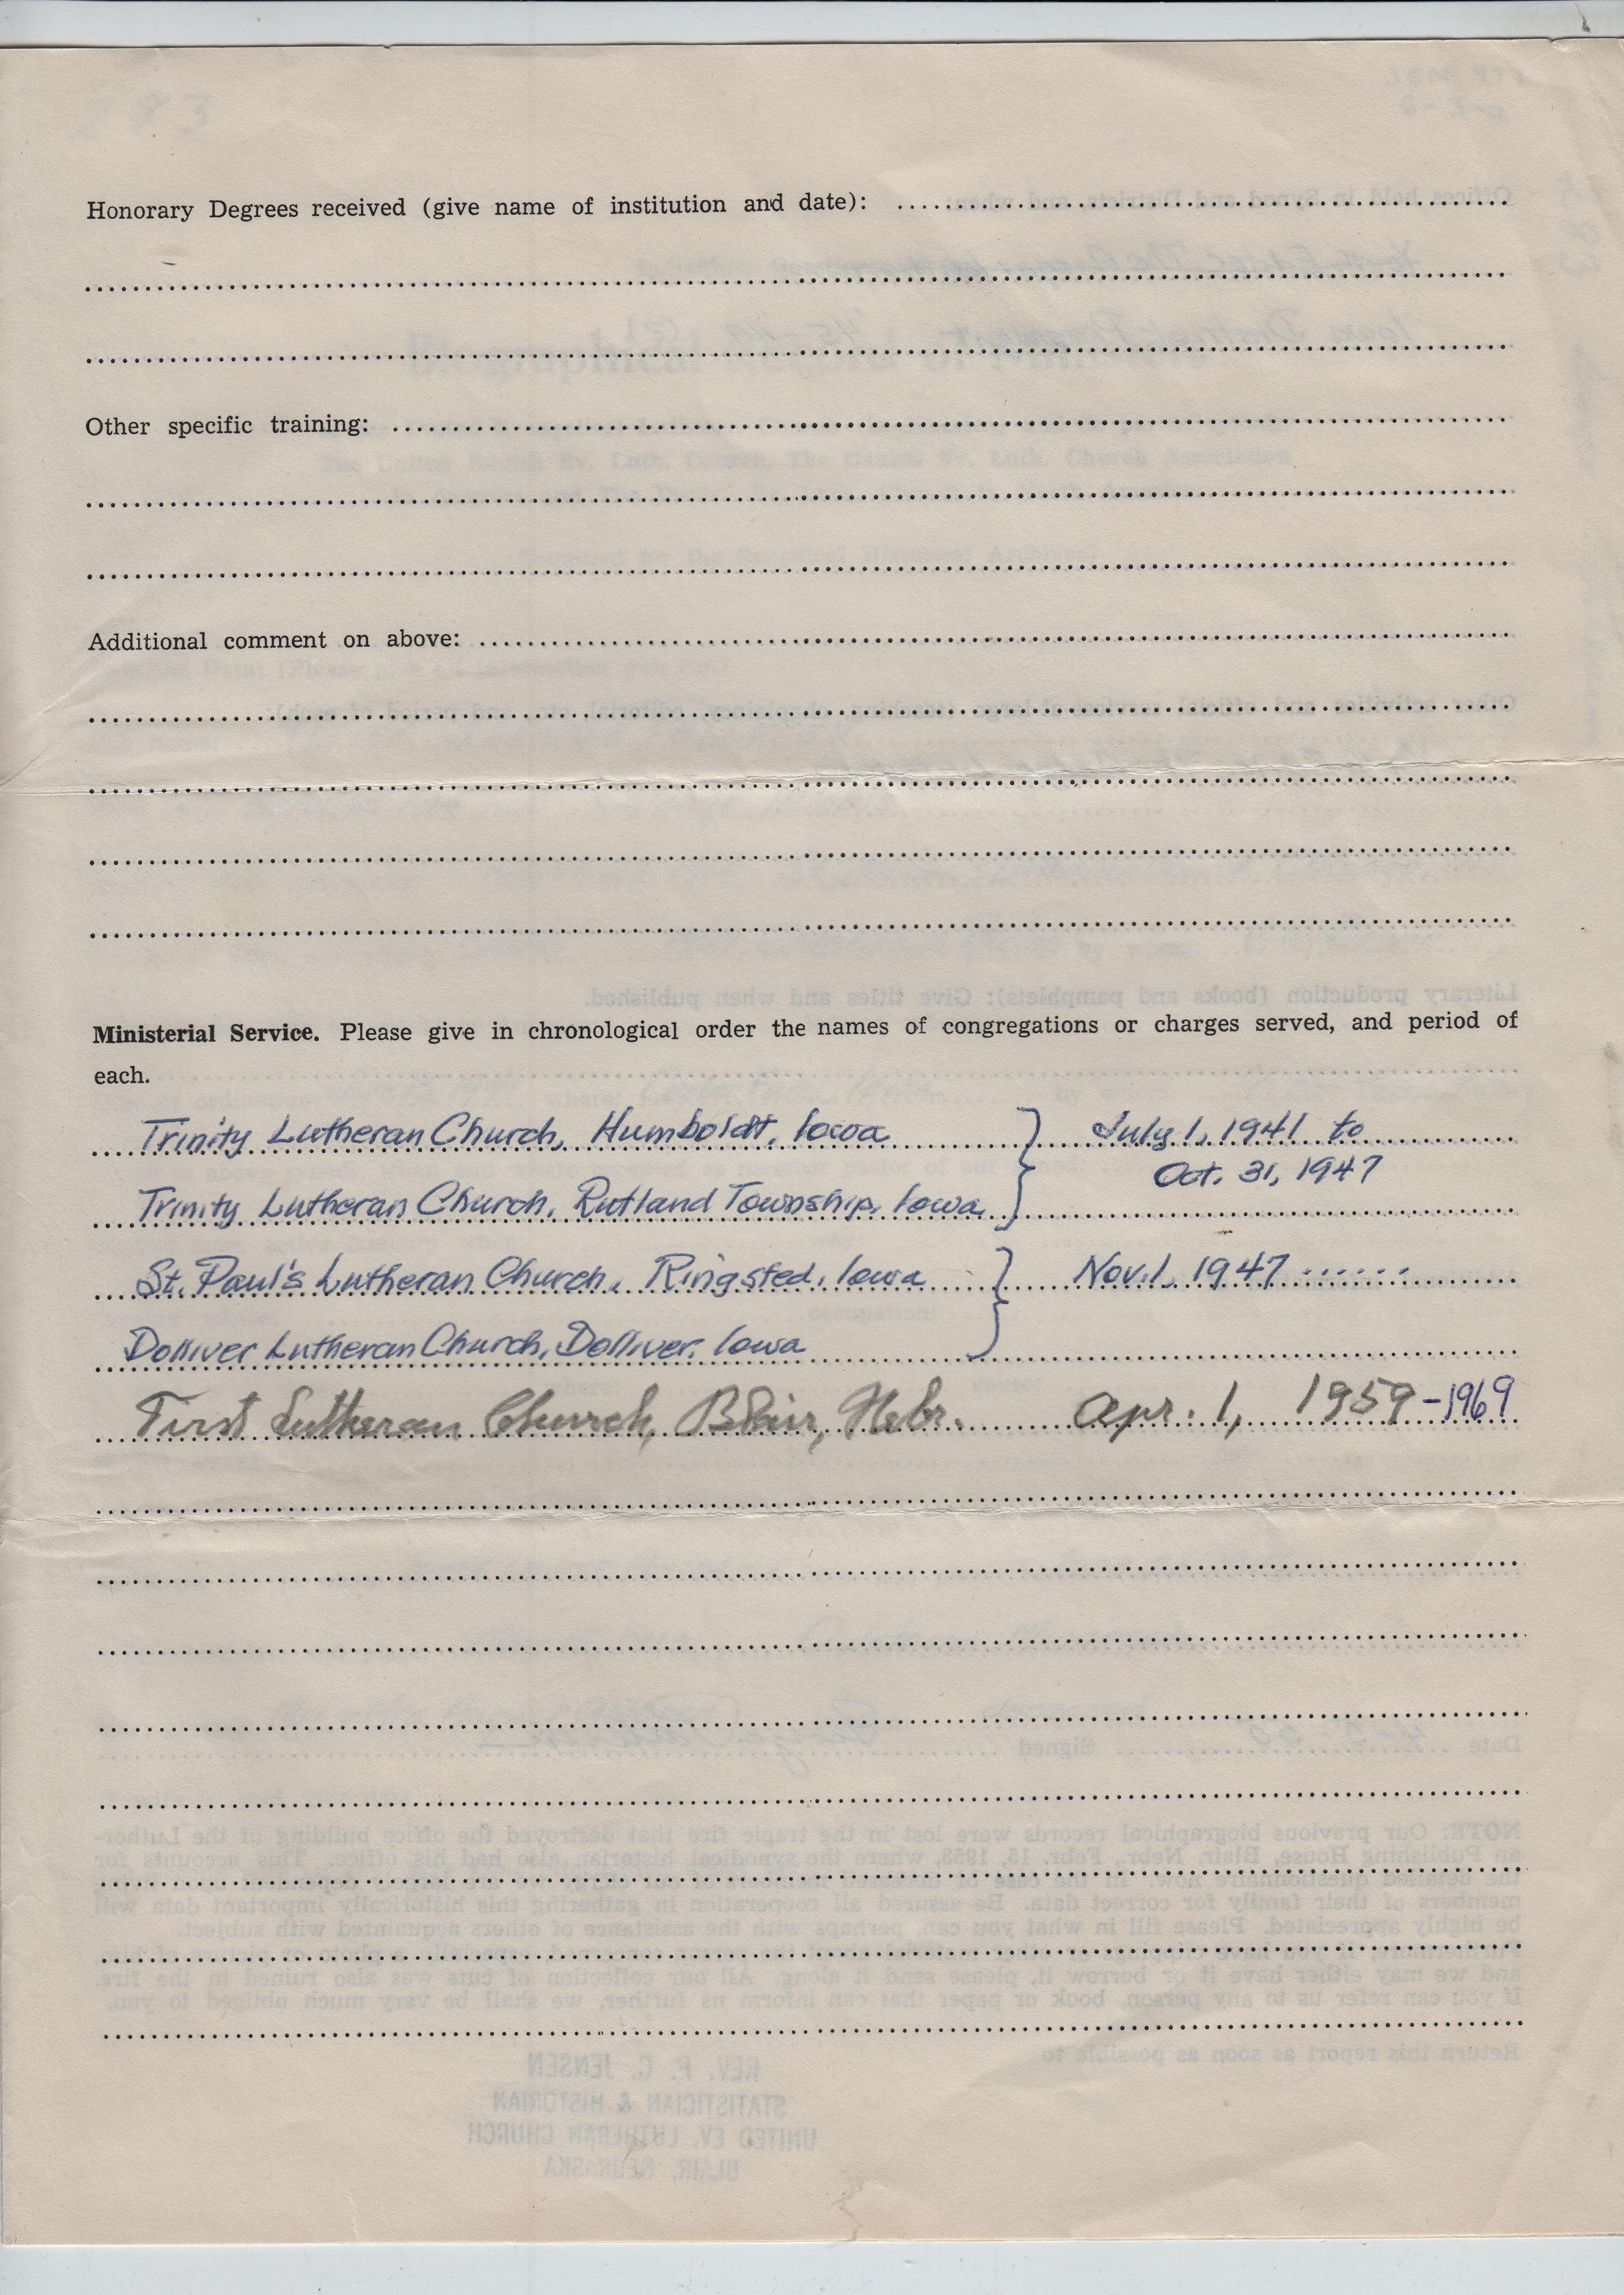 Honorary Degrees received (give name of institution and date):
Other specific training:
Additional comment on above:
Ministerial Service. Please give in chronological order the names of congregations or charges served, and period of
each.
Trinity Lutheran Church, Humboldt, Iowa } July 1, 1941 to
Oct. 31, 1947
Trinity Lutheran Church, Rutland Township, Iowa
St. Paul's Lutheran Church, Ringsted, Iowa } Nov. 1, 1947 ......
Dolliver Lutheran Church, Dolliver, Iowa
First Lutheran Church, Blair, Nebr. Apr. 1, 1959-1969
REV. P. C. JENSEN
STATISTICIAN & HISTORIAN
UNITED EV. LUTHERAN CHURCH
BLAIR, NEBRASKA